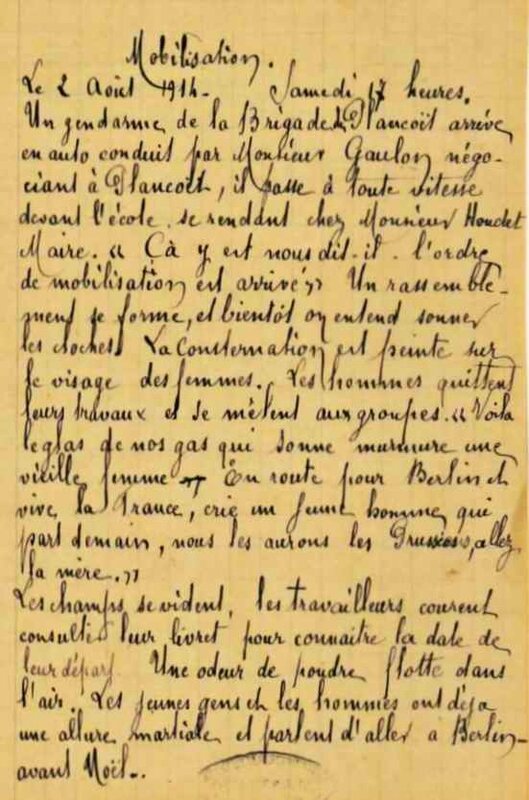 Mobilisation.
Le 2 Août 1914. Samedi 17 heures.
Un gendarme de la Brigade de Plancoët arrive
en auto conduit par Monsieur Gaulon négo-
ciant à Plancoët, il passe à toute vitesse
devant l'école se rendant chez Monsieur Houdet
Maire. « Çà y est nous dit-il. l'ordre
de mobilisation est arrivé » Un rassemble-
ment se forme, et bientôt on entend sonner
les cloches. La Consternation est peinte sur
le visage des femmes. Les hommes quittent
leurs travaux et se mêlent aux groupes. « Voila
le glas de nos gas qui sonne murmure une
vieille femme » En route pour Berlin et
vive la France, crie un jeune homme, qui
part demain, nous les aurons les Prussiens, allez
la mère. »
Les champs se vident, les travailleurs courent
consulter leur livret pour connaitre la date de
leur départ. Une odeur de poudre flotte dans
l'air. Les jeunes gens et les hommes ont déja
une allure martiale et parlent d'aller à Berlin
avant Noël..